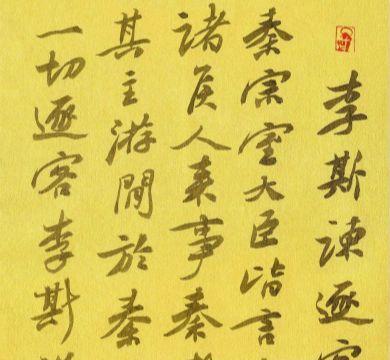 李斯諫逐客
秦宗室大臣皆言
諸侯人來事秦
其主游間於秦
一切逐客李斯